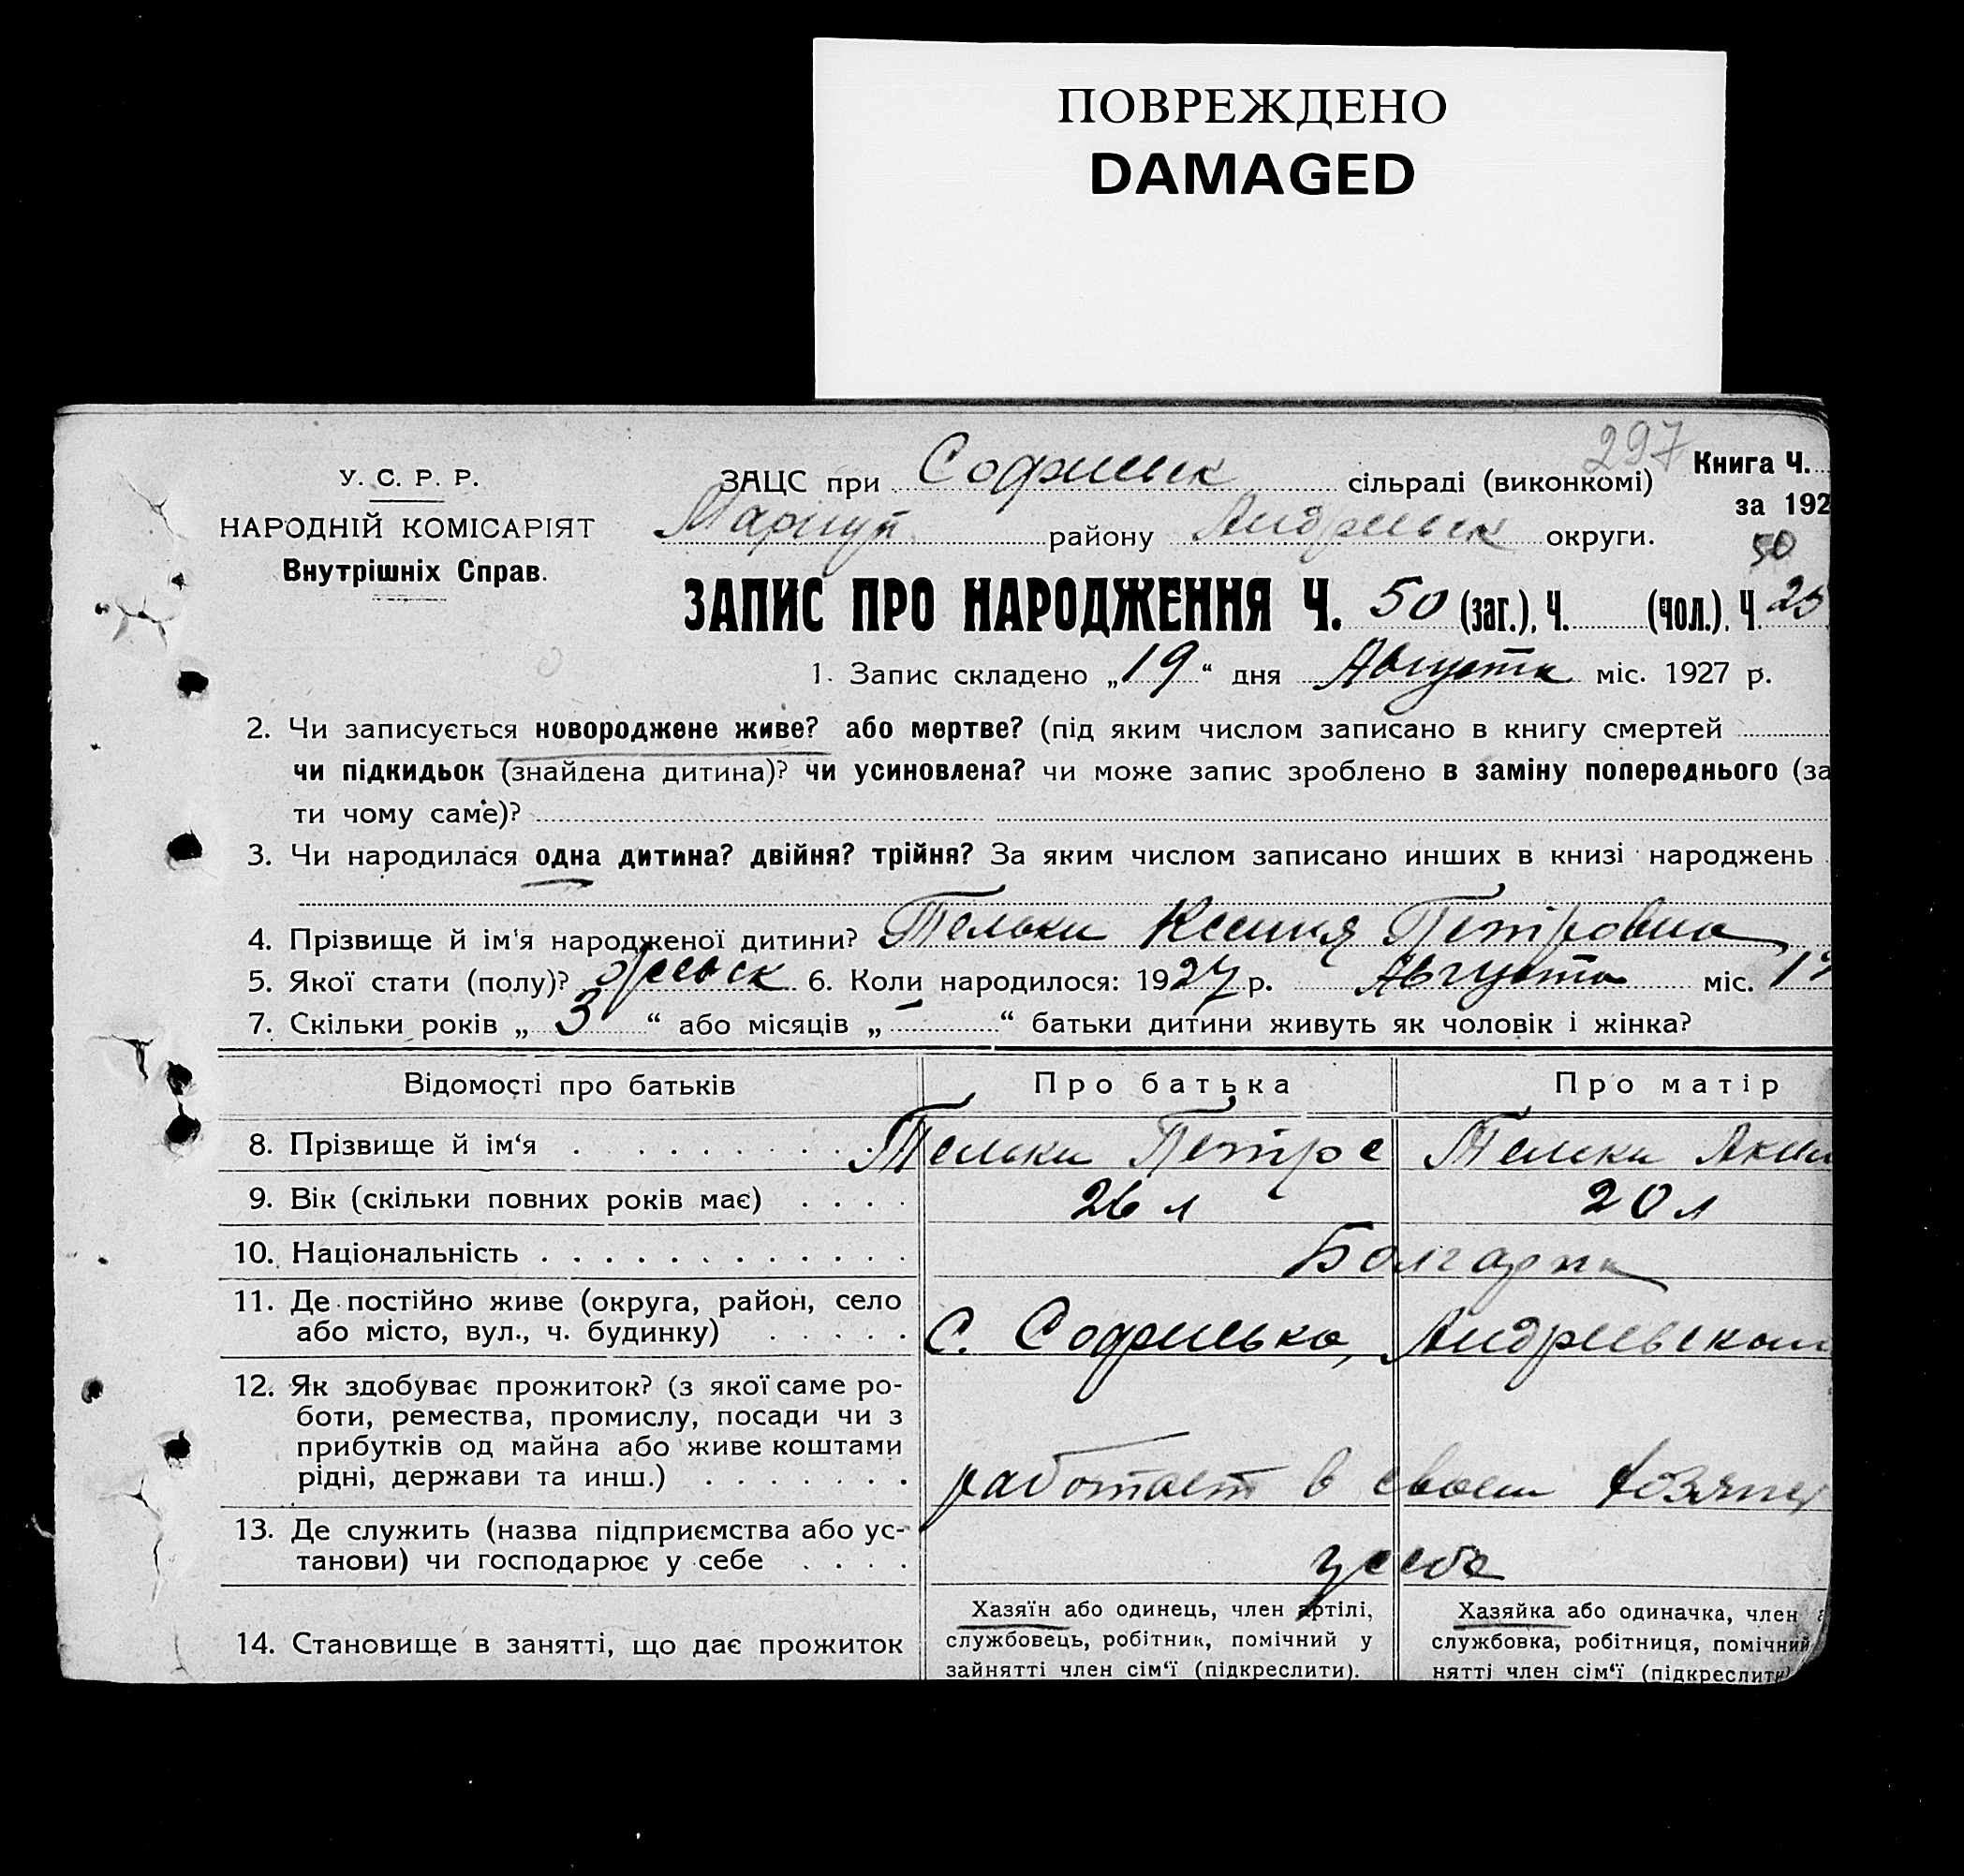 ПОВРЕЖДЕНО
DAMAGED
297
У. С. Р. Р.
НАРОДНІЙ КОМІСАРІЯТ
Внутрішніх Справ.
ЗАЦС при Софиевск сільраді (виконкомі)
Книга Ч.
за 192
Мариуп району Андреевск округи.
50
ЗАПИС ПРО НАРОДЖЕННЯ Ч. 50 (заг.), Ч. (чол.), Ч. 25
1. Запис складено „19“ дня Августа міс. 1927 р.
2. Чи записується новороджене живе? або мертве? (під яким числом записано в книгу смертей
чи підкидьок (знайдена дитина)? чи усиновлена? чи може запис зроблено в заміну попереднього (за
ти чому саме)?
3. Чи народилася одна дитина? двійня? трійня? За яким числом записано инших в книзі народжень
4. Прізвище й ім'я народженої дитини? Тельки Ксения Петровна
5. Якої стати (полу)? женск 6. Коли народилося: 1927 р. Августа міс. 17
7. Скільки років „3“ або місяців „-“ батьки дитини живуть як чоловік і жінка?
Відомості про батьків Про батька Про матір
8. Прізвище й ім‘я Тельки Петро Тельки
9. Вік (скільки повних років має) 26 л 20 л
10. Національність Болгары
11. Де постійно живе (округа, район, село
або місто, вул., ч. будинку) С. Софиевка, Андреевском
12. Як здобуває прожиток? (з якої саме ро-
боти, ремества, промислу, посади чи з
прибутків од майна або живе коштами
рідні, держави та инш.) работает в своем хозяйс
13. Де служить (назва підприємства або ус-
танови) чи господарює у себе у себя
14. Становище в занятті, що дає прожиток
Хазяїн або одинець, член артілі,
службовець, робітник, помічний у
зайнятті член сім‘ї (підкреслити).
Хазяйка або одиначка, член а
службовка, робітниця, помічний
нятті член сім‘ї (підкреслити)